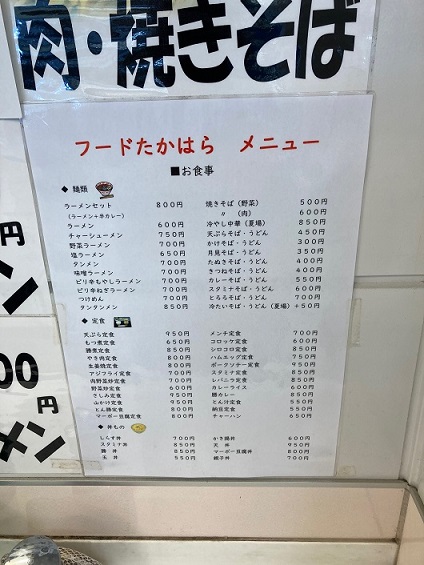 肉・焼きそば
フードたかはら メニュー
■お食事
◆ 麺類
ラーメンセット 800円
(ラーメン+半カレー)
ラーメン 600円
チャーシューメン 750円
野菜ラーメン 700円
塩ラーメン 650円
タンメン 700円
味噌ラーメン 700円
ピリ辛もやしラーメン 700円
ピリ辛ねぎラーメン 700円
つけめん 700円
タンタンメン 850円
焼きそば(野菜) 500円
々 (肉) 600円
冷やし中華(夏場) 850円
天ぷらそば・うどん 450円
かけそば・うどん 300円
月見そば・うどん 350円
たぬきそば・うどん 400円
きつねそば・うどん 400円
カレーそば・うどん 550円
スタミナそば・うどん 600円
とろろそば・うどん 700円
冷たいそば・うどん(夏場)+50円
◆ 定食
天ぷら定食 950円
もつ煮定食 650円
豚煮定食 850円
やき肉定食 800円
生姜焼定食 800円
アジフライ定食 700円
肉野菜炒定食 700円
野菜炒定食 600円
さしみ定食 950円
山かけ定食 950円
とん豚定食 800円
マーボー豆腐定食 800円
メンチ定食 700円
コロッケ定食 600円
シロコロ定食 850円
ハムエッグ定食 750円
ポークソテー定食 950円
スタミナ定食 850円
レバニラ定食 850円
カレーライス 600円
勝カレー 850円
とん汁定食 550円
納豆定食 550円
チャーハン 650円
◆ 丼もの
しらす丼 700円
スタミナ丼 850円
勝 丼 850円
玉 丼 550円
かき揚丼 600円
天 丼 950円
マーボー豆腐丼 800円
親子丼 700円
円
ン
00
円
メン